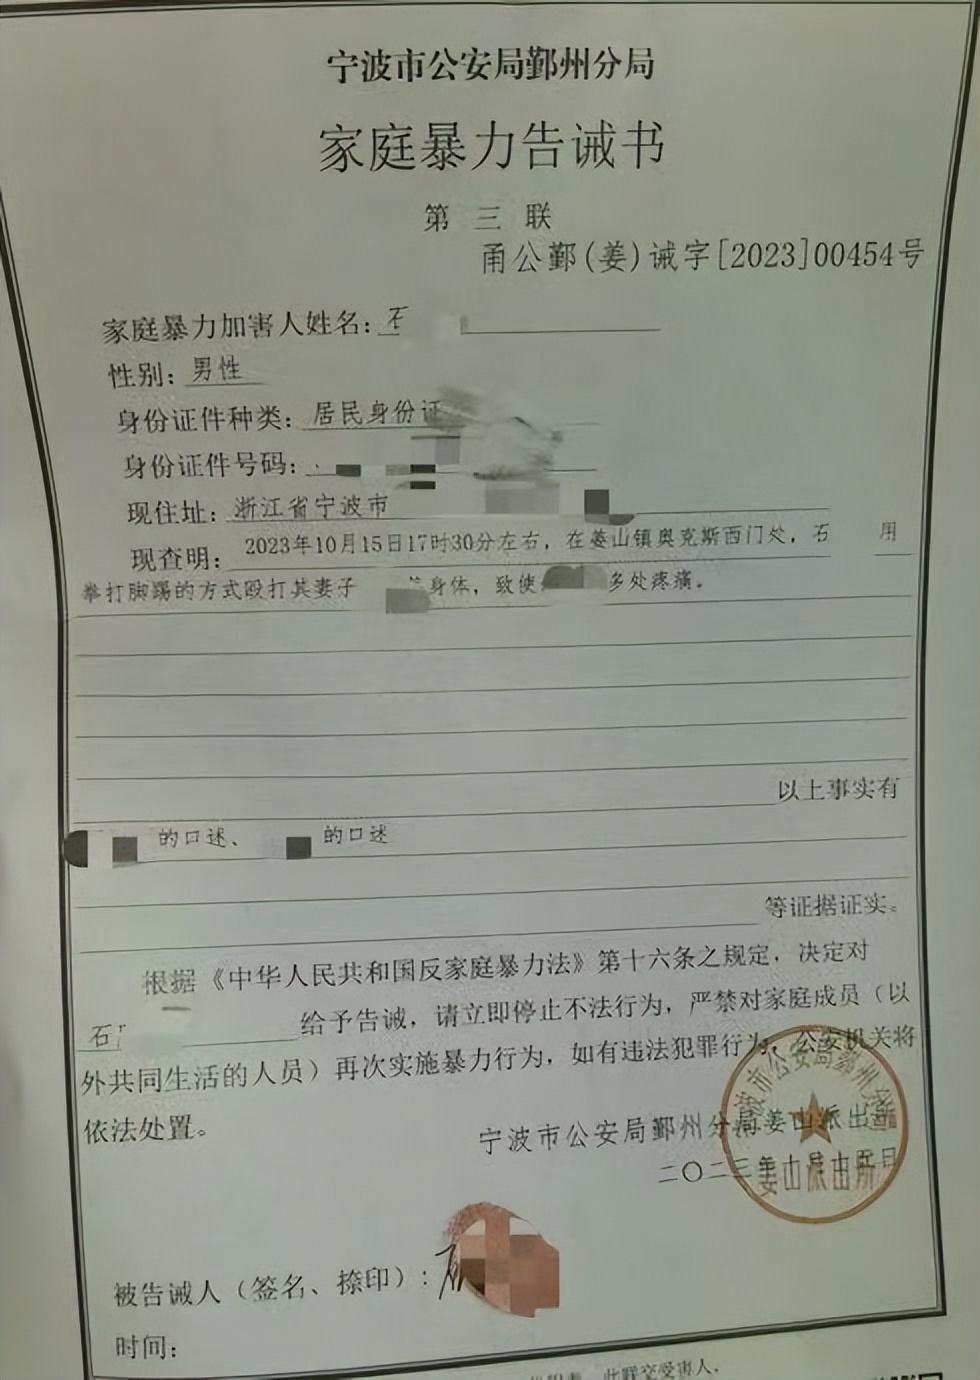 宁波市公安局鄞州分局
家庭暴力告诫书
第三联
甬公鄞(姜)诫字[2023]00454号
家庭暴力加害人姓名：石
性别：男性
身份证件种类：居民身份证
身份证件号码：
现住址：浙江省宁波市
现查明：2023年10月15日17时30分左右，在姜山镇奥克斯西门处，石 用
拳打脚踢的方式殴打其妻子 身体，致使 多处疼痛。
以上事实有
的口述、 的口述
等证据证实。
根据《中华人民共和国反家庭暴力法》第十六条之规定，决定对
石 给予告诫，请立即停止不法行为，严禁对家庭成员（以
外共同生活的人员）再次实施暴力行为，如有违法犯罪行为，公安机关将
依法处置。
宁波市公安局鄞州分局姜山派出所
二〇二三
姜山派出所
被告诫人（签名、捺印）：
时间：
此联交受害人。